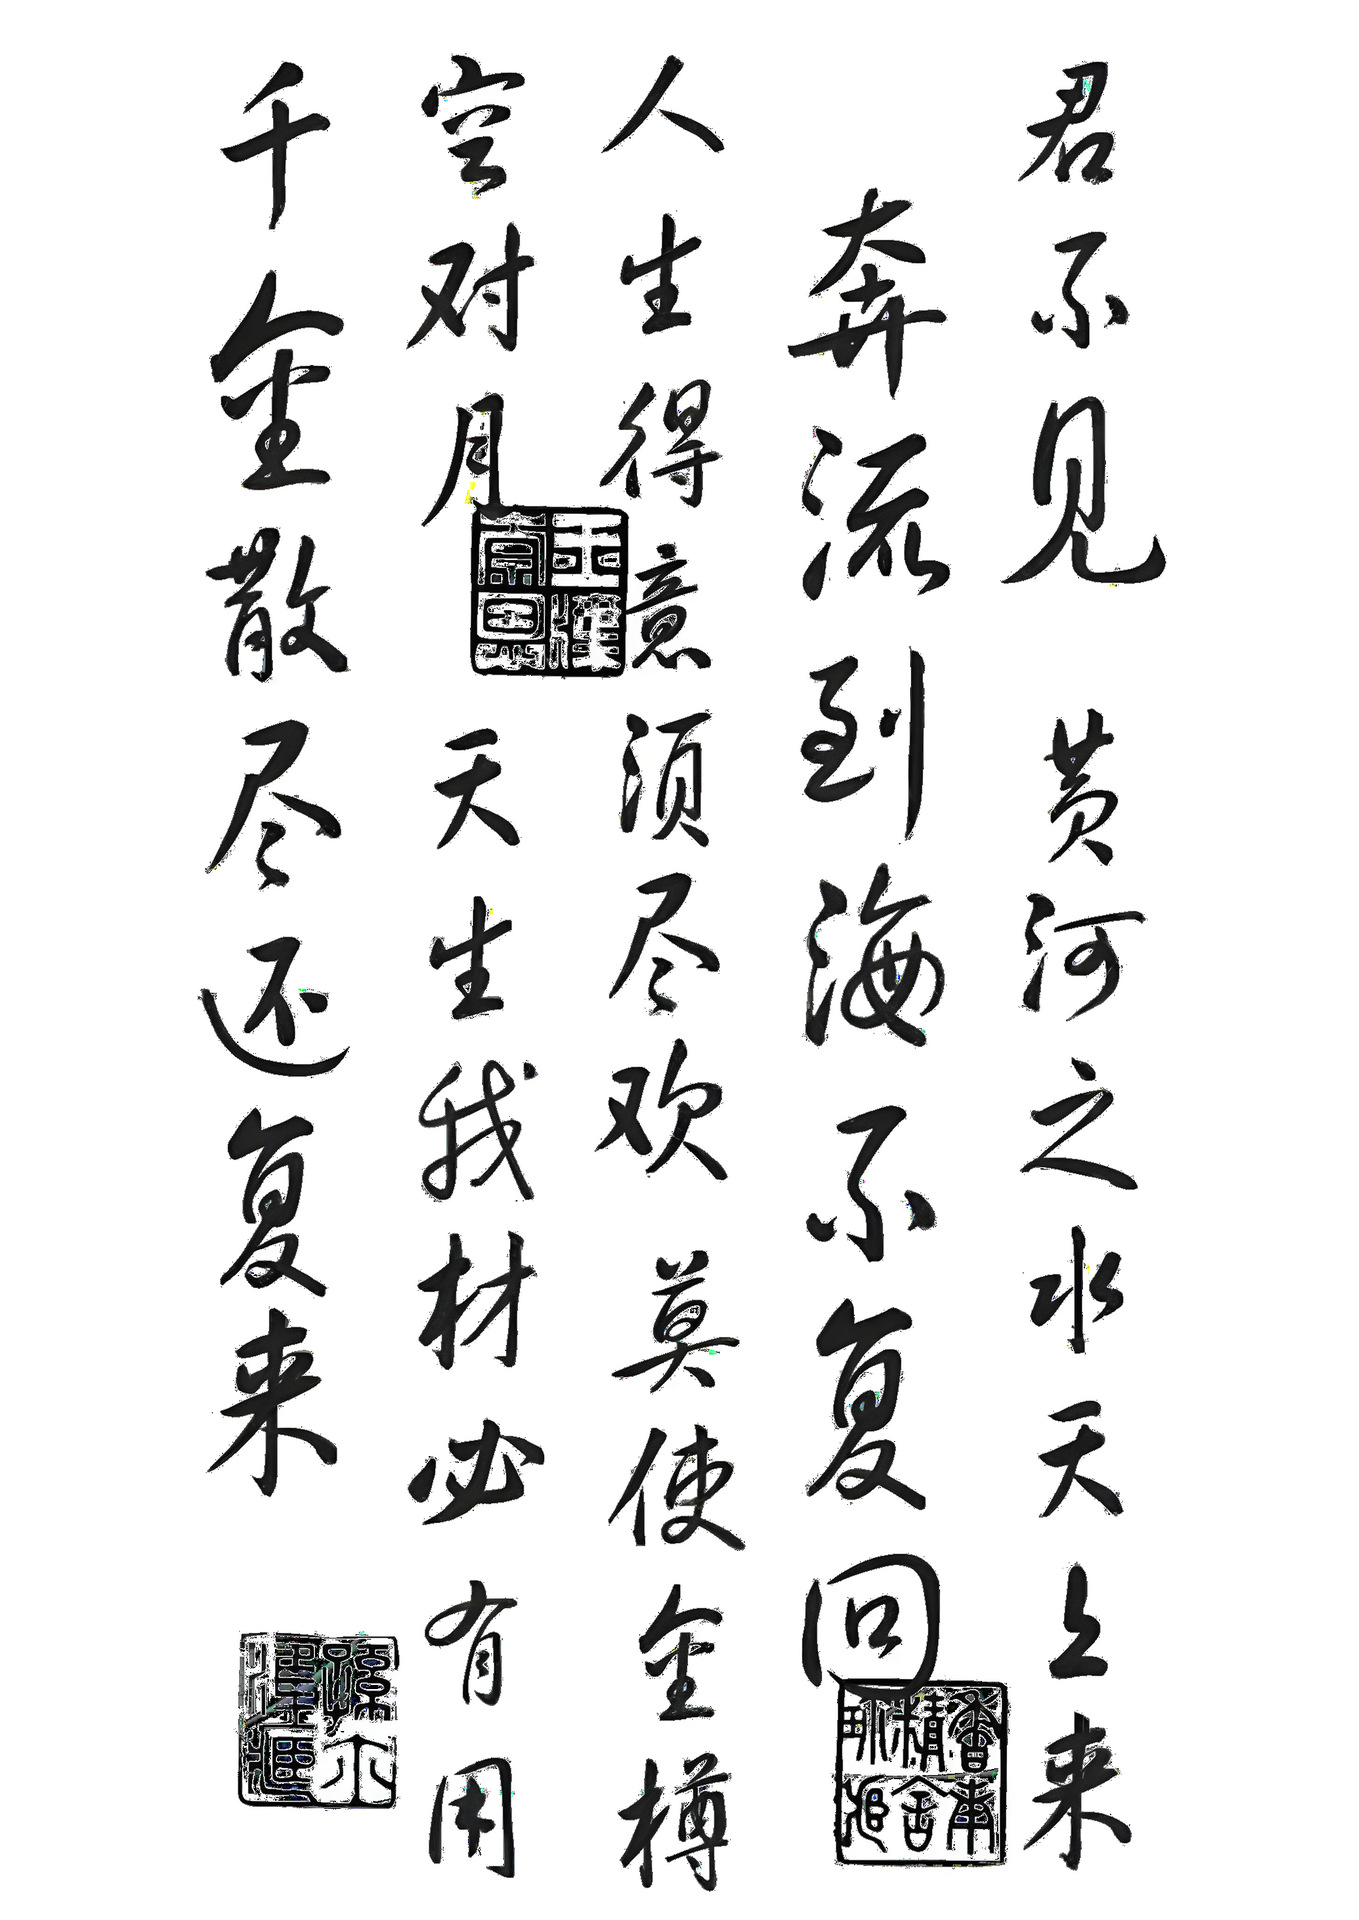 君不见 黄河之水天上来
奔流到海不复回
人生得意须尽欢 莫使金樽
空对月 天生我材必有用
千金散尽还复来